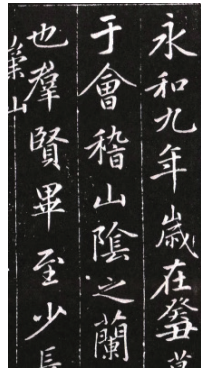 永和九年歲在癸丑
于會稽山陰之蘭
也羣賢畢至少長
崇山